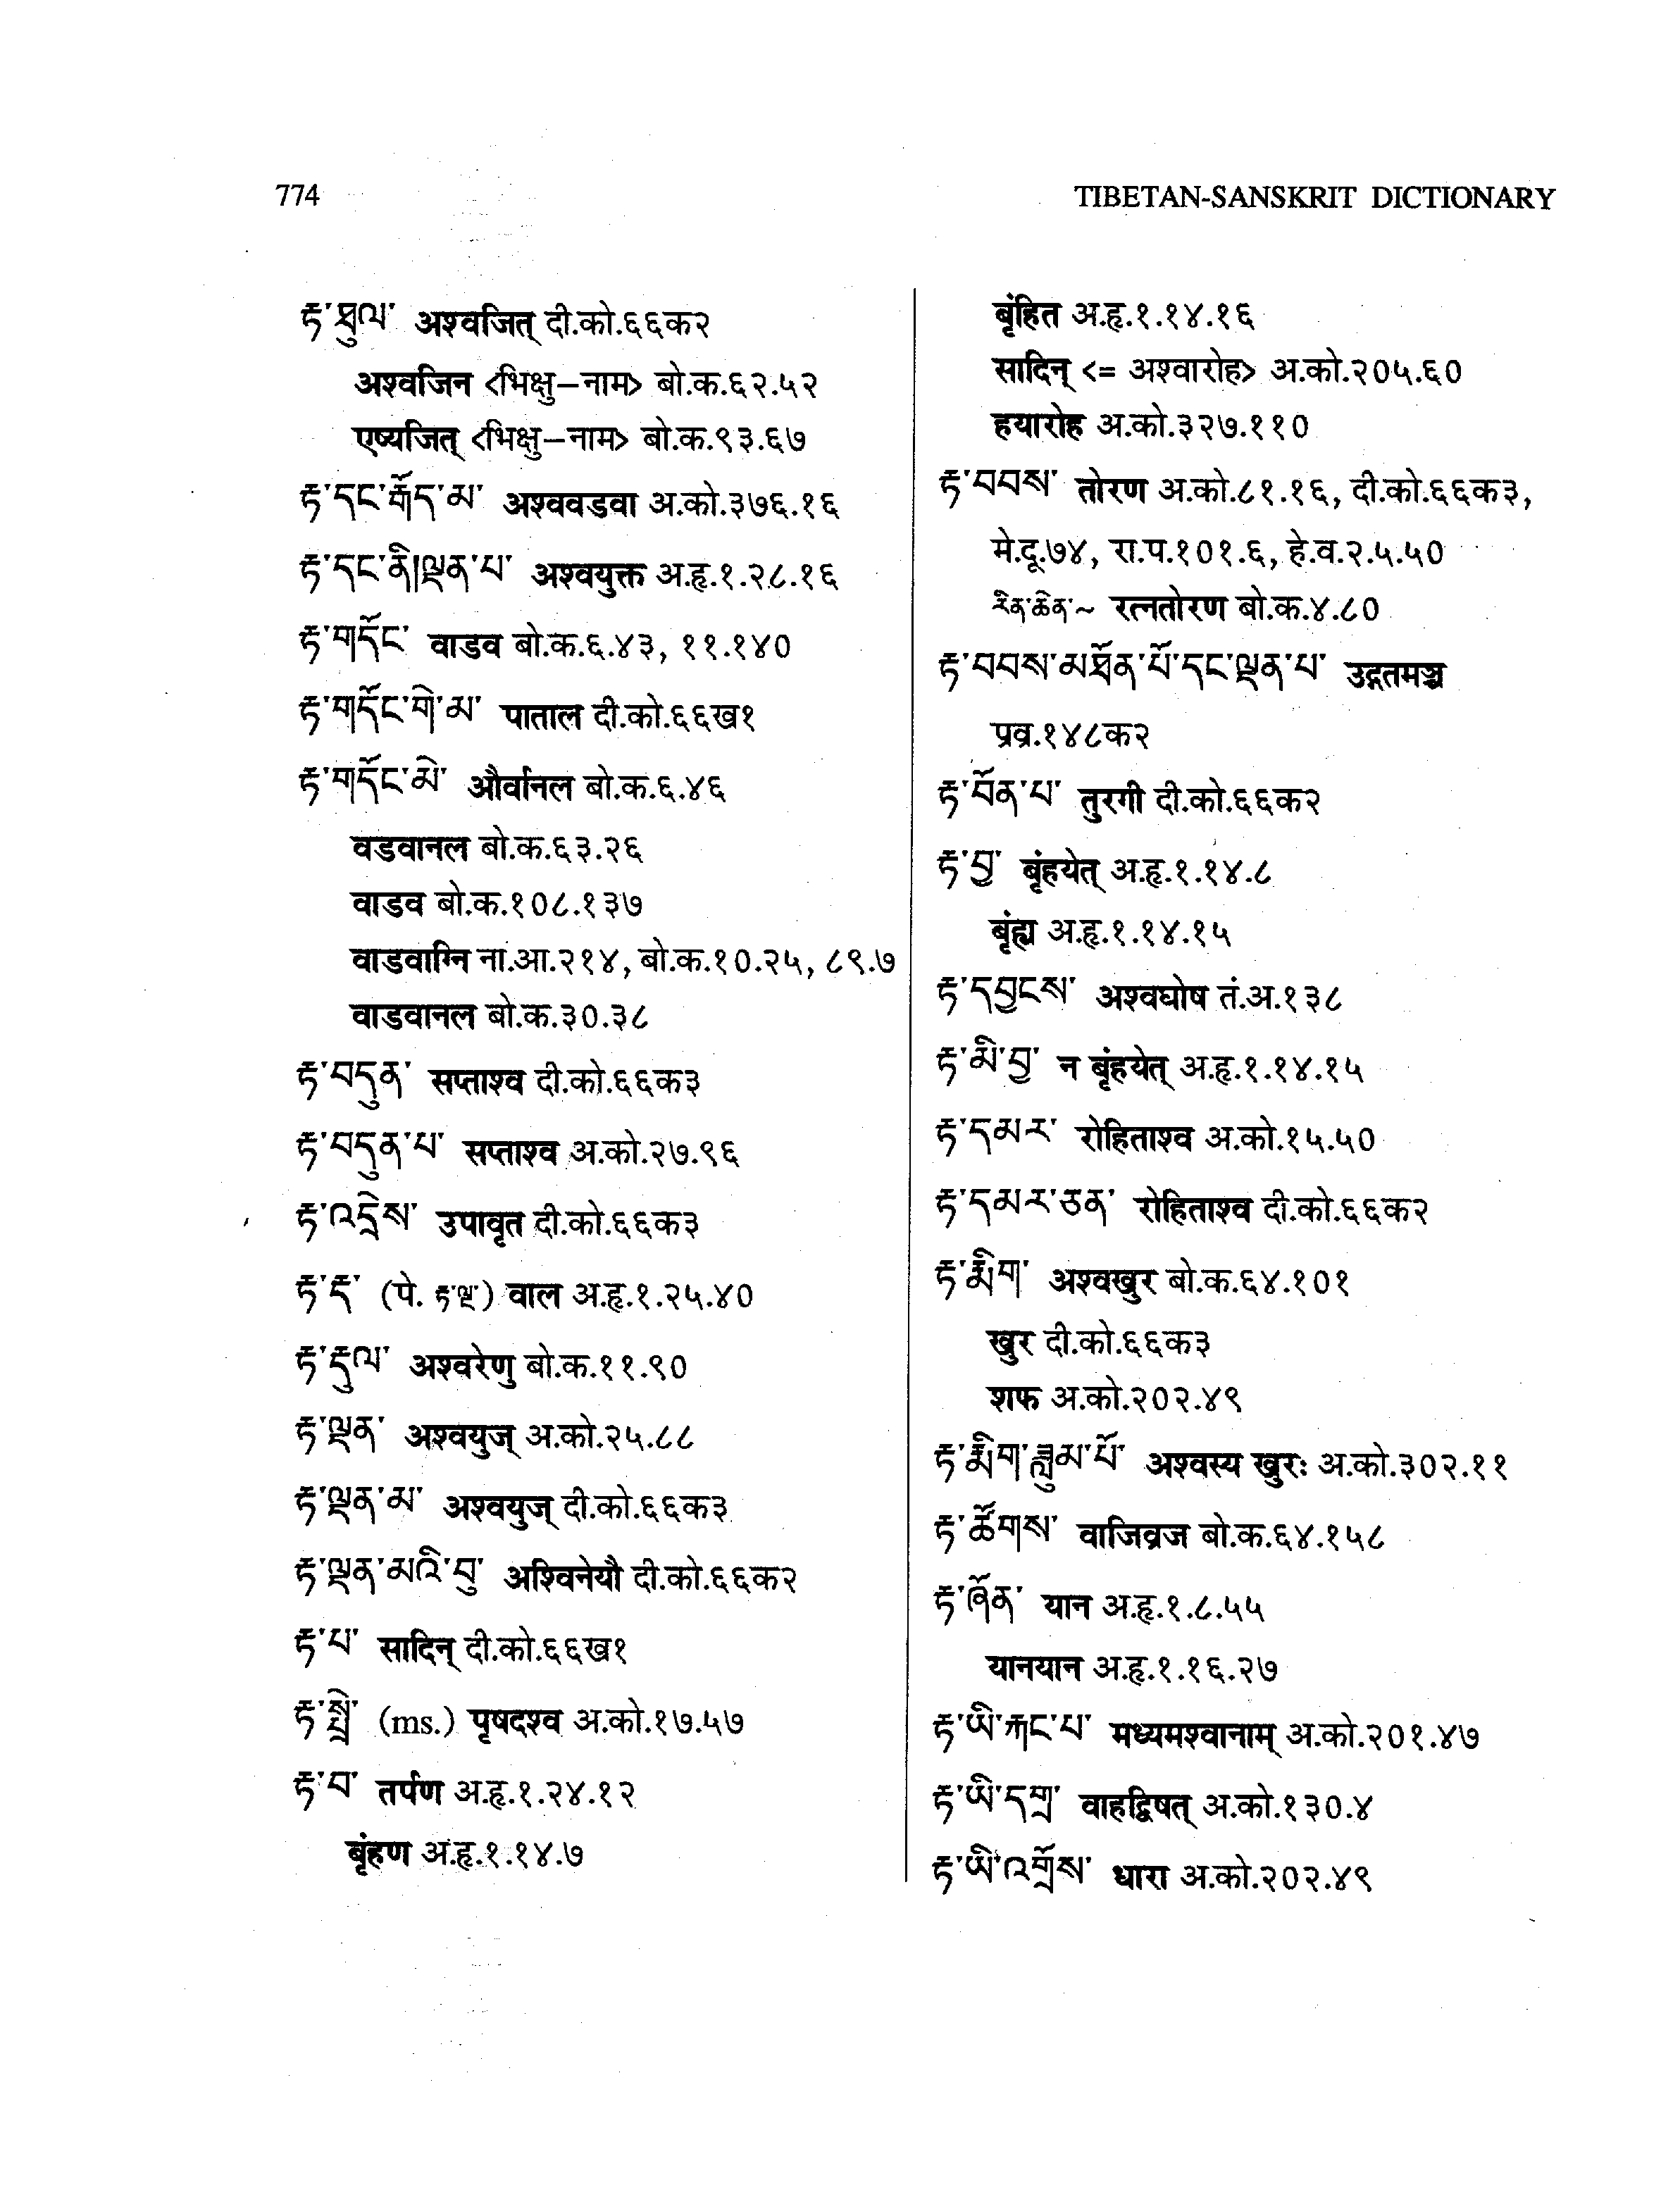 774
TIBETAN-SANSKRIT DICTIONARY
རྟ་ཐུལ་ अश्वजित् दी.को.६६क२
अश्वजिन <भिक्षु–नाम> बो.क.६२.५२
एष्यजित् <भिक्षु–नाम> बो.क.९३.६७
རྟ་དང་རྒོད་མ་ अश्ववडवा अ.को.३७६.१६
རྟ་དང་ནི།ལྡན་པ་ अश्वयुक्त अ.हृ.१.२८.१६
རྟ་གདོང་ वाडव बो.क.६.४३, ११.१४०
རྟ་གདོང་གེ་མ་ पाताल दी.को.६६ख१
རྟ་གདོང་མེ་ और्वानल बो.क.६.४६
वडवानल बो.क.६३.२६
वाडव बो.क.१०८.१३७
वाडवाग्नि ना.आ.२१४, बो.क.१०.२५, ८९.७
वाडवानल बो.क.३०.३८
རྟ་བདུན་ सप्ताश्व दी.को.६६क३
རྟ་བདུན་པ་ सप्ताश्व अ.को.२७.९६
རྟ་འདྲེས་ उपावृत दी.को.६६क३
རྟ་རྡ་ (पे. རྟ་ལྡ་) वाल अ.हृ.१.२५.४०
རྟ་རྡུལ་ अश्वरेणु बो.क.११.९०
རྟ་ལྡན་ अश्वयुज् अ.को.२५.८८
རྟ་ལྡན་མ་ अश्वयुज् दी.को.६६क३
རྟ་ལྡན་མའི་བུ་ अश्विनेयौ दी.को.६६क२
རྟ་པ་ सादिन् दी.को.६६ख१
རྟ་སྤྲེ་ (ms.) पृषदश्व अ.को.१७.५७
རྟ་བ་ तर्पण अ.हृ.१.२४.१२
बृंहण अ.हृ.१.१४.७
बृंहित अ.हृ.१.१४.१६
सादिन् <= अश्वारोह> अ.को.२०५.६०
हयारोह अ.को.३२७.११०
རྟ་བབས་ तोरण अ.को.८१.१६, दी.को.६६क३,
मे.दू.७४, रा.प.१०१.६, हे.व.२.५.५०
རིན་ཆེན་~ रत्नतोरण बो.क.४.८०
རྟ་བབས་མཐོན་པོ་དང་ལྡན་པ་ उद्गतमञ्च
प्रव्र.१४८क२
རྟ་བོན་པ་ तुरगी दी.को.६६क२
རྟ་བྱ་ बृंहयेत् अ.हृ.१.१४.८
बृंह्य अ.हृ.१.१४.१५
རྟ་དབྱངས་ अश्वघोष तं.अ.१३८
རྟ་མི་བྱ་ न बृंहयेत् अ.हृ.१.१४.१५
རྟ་དམར་ रोहिताश्व अ.को.१५.५०
རྟ་དམར་ཅན་ रोहिताश्व दी.को.६६क२
རྟ་རྨིག་ अश्वखुर बो.क.६४.१०१
खुर दी.को.६६क३
शफ अ.को.२०२.४९
རྟ་རྨིག་ཟླུམ་པོ་ अश्वस्य खुरः अ.को.३०२.११
རྟ་ཚོགས་ वाजिव्रज बो.क.६४.१५८
རྟ་ཞོན་ यान अ.हृ.१.८.५५
यानयान अ.हृ.१.१६.२७
རྟ་ཡི་རྐང་པ་ मध्यमश्वानाम् अ.को.२०१.४७
རྟ་ཡི་དགྲ་ वाहद्विषत् अ.को.१३०.४
རྟ་ཡི་འགྲོས་ धारा अ.को.२०२.४९